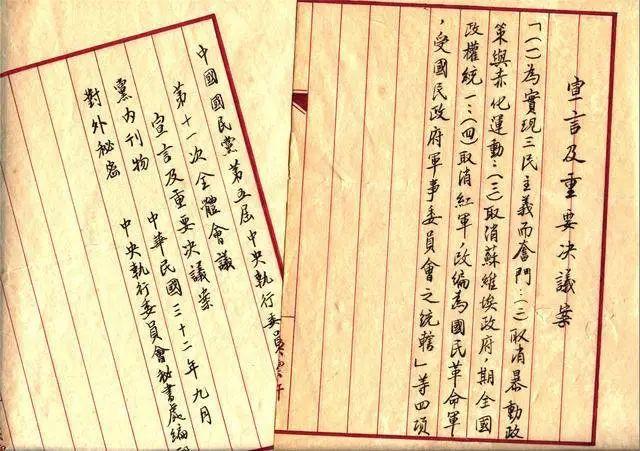 宣言及重要決議案
「(一)為實現三民主義而奮鬥;(二)取消暴動政
策與赤化運動;(三)取消蘇維埃政府,期全國
政權統一;(四)取消紅軍,改編為國民革命軍
,受國民政府軍事委員會之統轄」等四項
中國國民黨第五屆中央執行委員
第十一次全體會議
宣言及重要決議案
中華民國三十二年九月
黨內刊物 中央執行委員會秘書處編
對外秘密